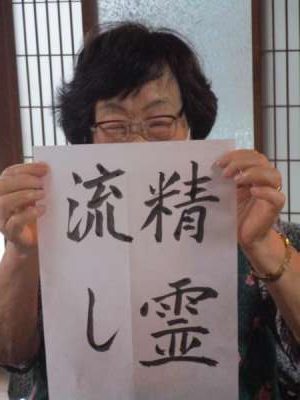 精霊
流し